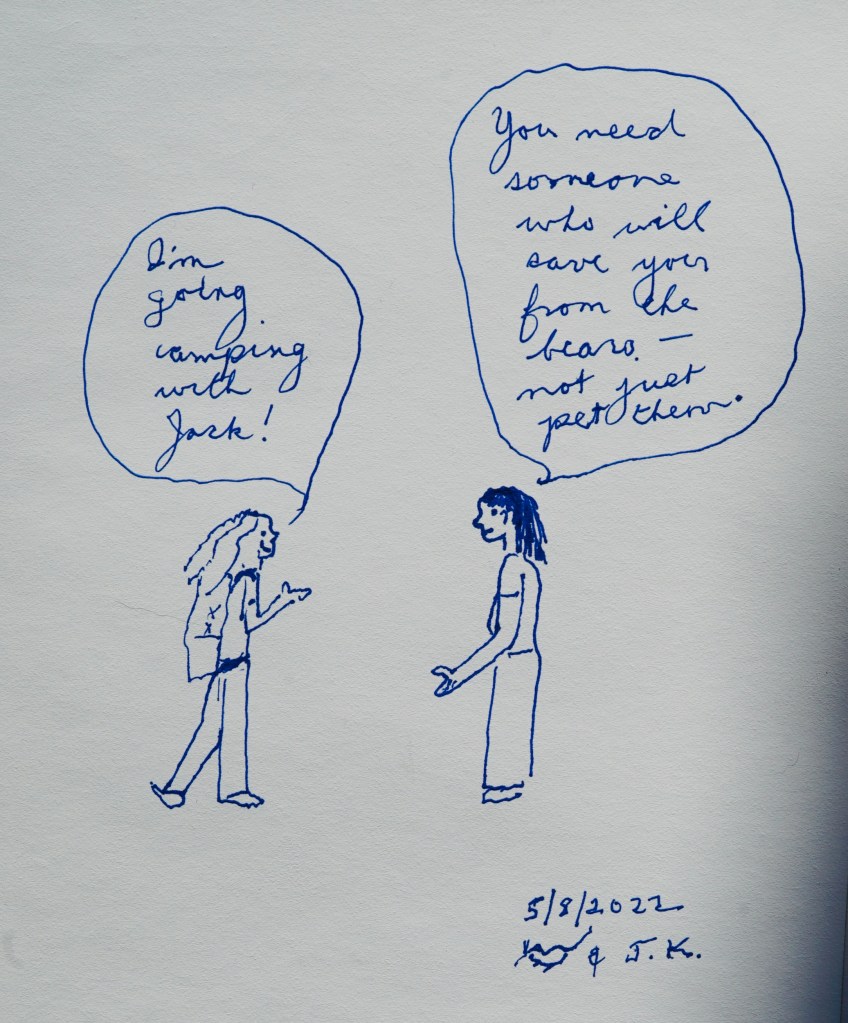 I'm
going
camping
with
Jack!
You need
someone
who will
save you
from the
bears —
not just
pet them.
5/8/2022
& J.K.